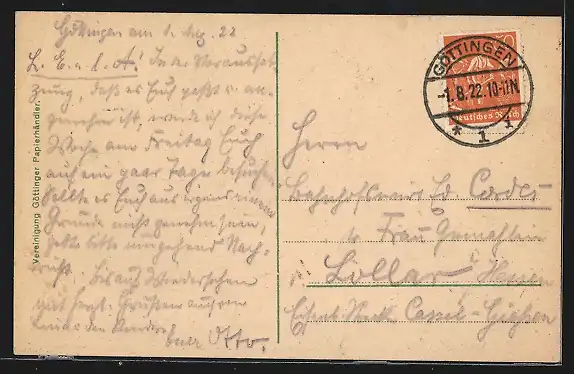 Göttingen am 1. Aug. 22
L. E. u. l. A.! In der Voraussetzung
zung, daß es Euch paßt u. angenehm
genehm ist, werde ich diese
Woche am Freitag Euch
auf ein paar Tage besuchen.
Sollte es Euch aus irgend einem
Grunde nicht genehm sein,
gebt bitte umgehend Nachricht
richt. Bis auf Wiedersehen
mit herzl. Grüßen auch von
den Anderen
Euer Otto.
Vereinigung Göttinger Papierhändler.
GÖTTINGEN
-1.8.22.10-11N
* 1 1
Deutsches Reich
Herrn
Bahnhofswirt Ed. Cordes
u. Frau Gemahlin
Lollar Hessen
Eisenb. Strecke Cassel-Gießen